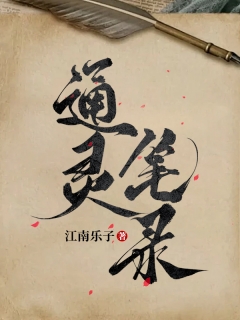 通灵笔录
江南乐子 著